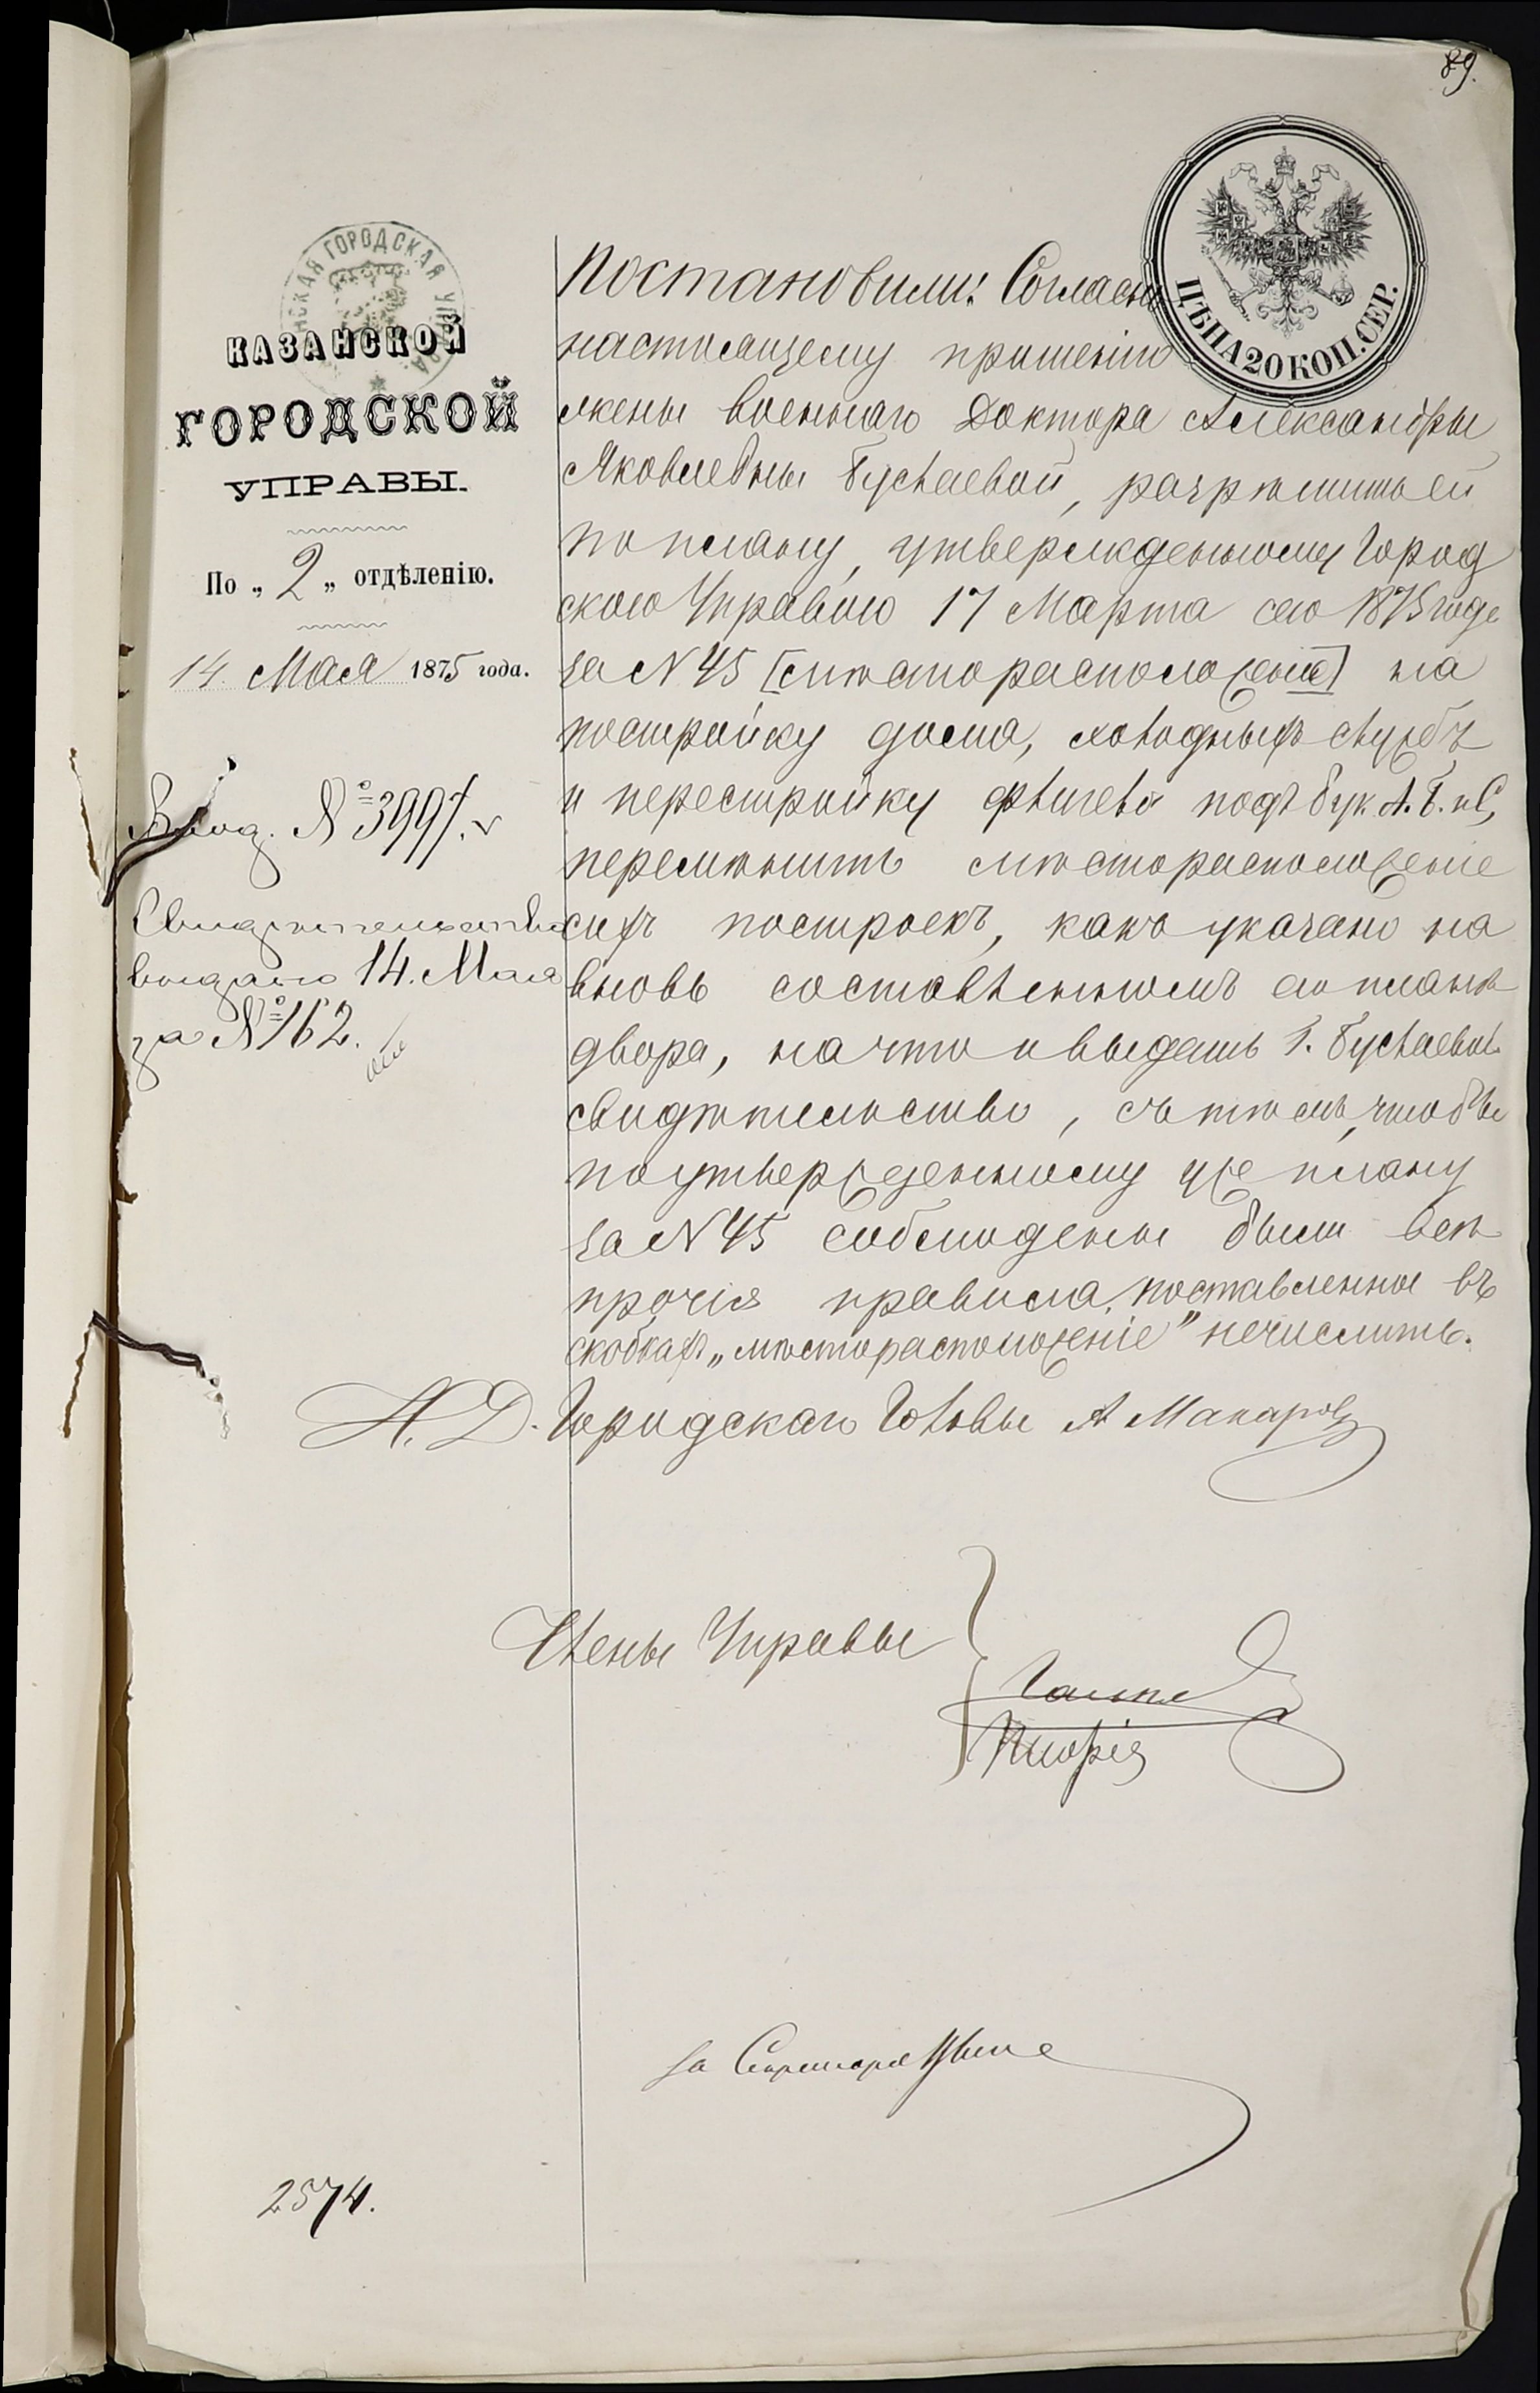 89.
КАЗАНСКАЯ ГОРОДСКАЯ УПРАВА
ЦѢНА 20 КОП. СЕР.
КАЗАНСКОЙ
ГОРОДСКОЙ
УПРАВЫ.
По „ 2 „ отдѣленію.
14 Мая 1875 года.
Вход. № 3997.
Свидѣтельство
выдано 14. Мая
за № 162.
Постановили: Согласно
настоящему прошенію
жены военнаго Доктора Александры
Яковлевны Буслаевой, разрѣшить ей
по плану, утвержденному Город
скою Управою 17 Марта сего 1875 года
за N 45 [мѣсторасположеніе] на
постройку дома, холодныхъ службъ
и перестройку флигеля подъ бук. А. Б. и С,
перемѣнить мѣсторасположеніе
сихъ построекъ, какъ указано на
вновь составленномъ ею планѣ
двора, на что и выдать Г. Буслаевой
свидѣтельство, съ тѣмъ, чтобы
по утвержденному уже плану
за N 45 соблюдены были всѣ
прочія правила, поставленное въ
скобкахъ „мѣсторасположеніе" нечислить.
И. Д. Городскаго Головы А Макаров
Члены Управы
За Секретаря
2574.